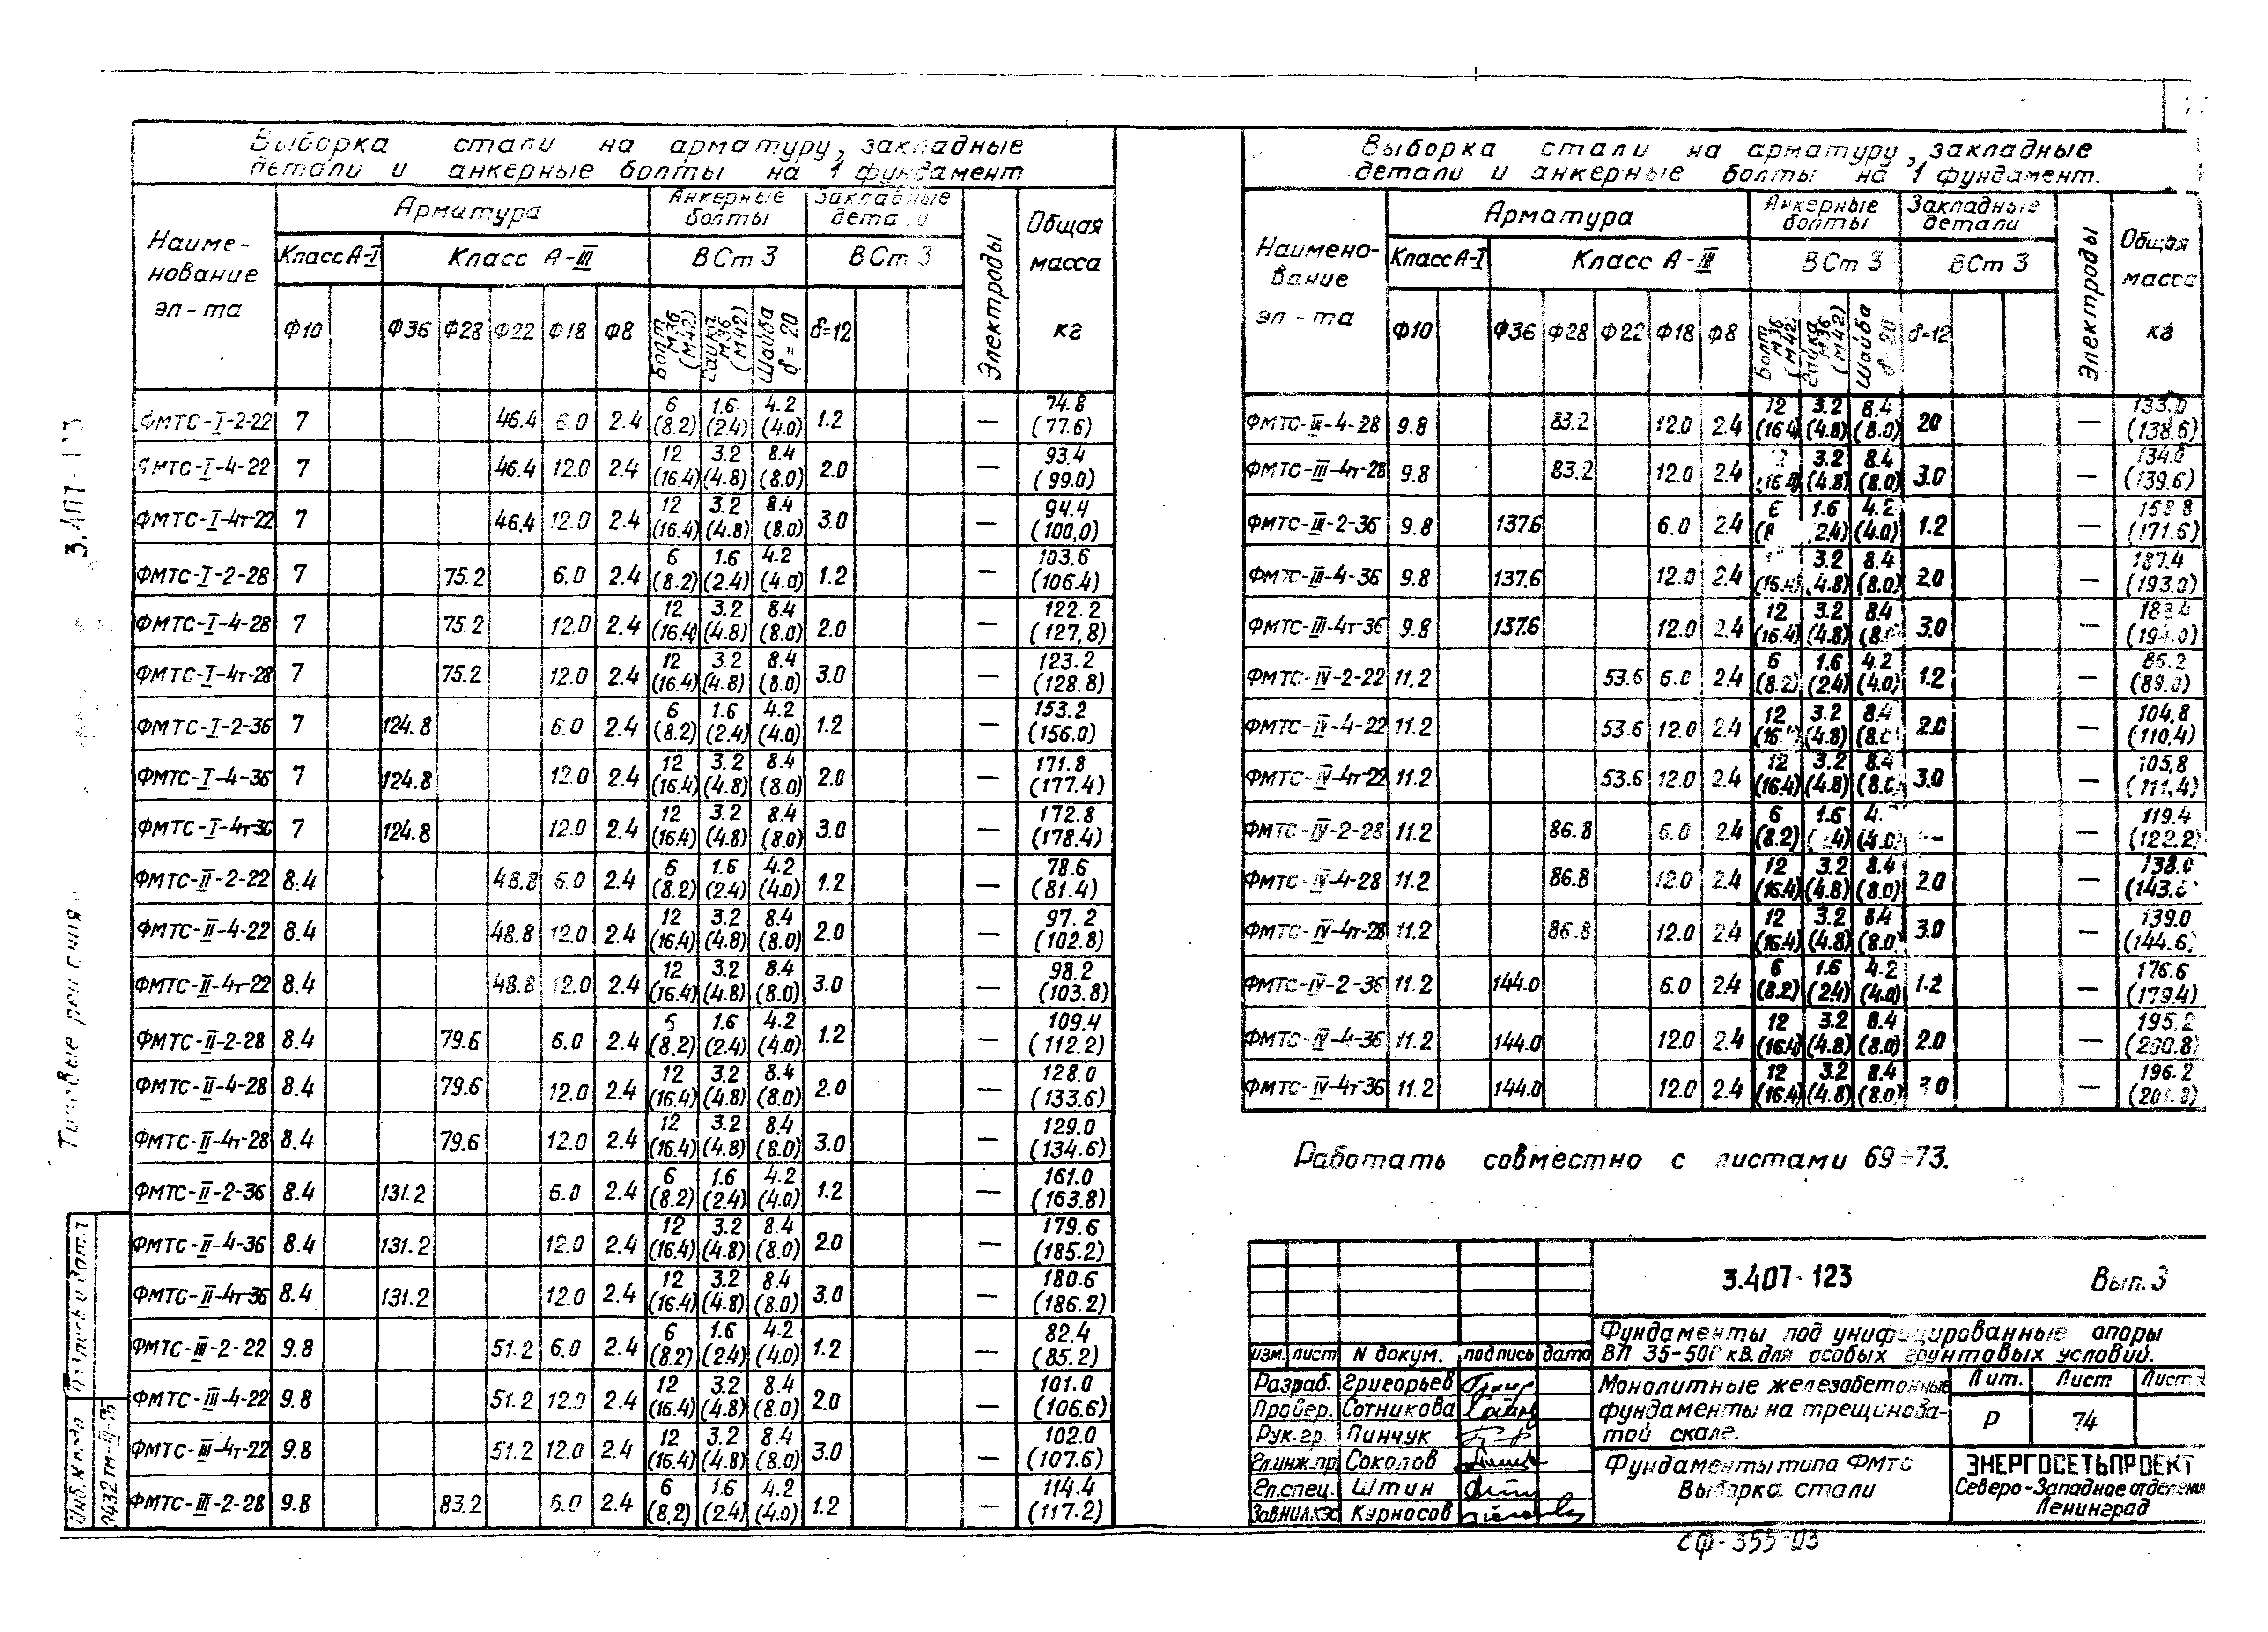 Выборка стали на арматуру, закладные
детали и анкерные болты на 1 фундамент
Наиме-
нование
эл-та
Арматура
Анкерные
болты
Закладные
Электроды
Общая
масса
кг
Класс А-I
Класс А-III
ВСт 3
ВСт 3
Ф10 Ф36 Ф28 Ф22 Ф18 Ф8 Болт М36 (М42) Гайка М36 (М42) Шайба δ=20 δ=12
ФМТС-I-2-22 7 46.4 6.0 2.4 6 (8.2) 1.6 (2.4) 4.2 (4.0) 1.2 — 74.8 (77.6)
ФМТС-I-4-22 7 46.4 12.0 2.4 12 (16.4) 3.2 (4.8) 8.4 (8.0) 2.0 — 93.4 (99.0)
ФМТС-I-4т-22 7 46.4 12.0 2.4 12 (16.4) 3.2 (4.8) 8.4 (8.0) 3.0 — 94.4 (100,0)
ФМТС-I-2-28 7 75.2 6.0 2.4 6 (8.2) 1.6 (2.4) 4.2 (4.0) 1.2 — 103.6 (106.4)
ФМТС-I-4-28 7 75.2 12.0 2.4 12 (16.4) 3.2 (4.8) 8.4 (8.0) 2.0 — 122.2 (127,8)
ФМТС-I-4т-28 7 75.2 12.0 2.4 12 (16.4) 3.2 (4.8) 8.4 (8.0) 3.0 — 123.2 (128.8)
ФМТС-I-2-36 7 124.8 6.0 2.4 6 (8.2) 1.6 (2.4) 4.2 (4.0) 1.2 — 153.2 (156.0)
ФМТС-I-4-36 7 124.8 12.0 2.4 12 (16.4) 3.2 (4.8) 8.4 (8.0) 2.0 — 171.8 (177.4)
ФМТС-I-4т36 7 124.8 12.0 2.4 12 (16.4) 3.2 (4.8) 8.4 (8.0) 3.0 — 172.8 (178.4)
ФМТС-II-2-22 8.4 48.8 6.0 2.4 6 (8.2) 1.6 (2.4) 4.2 (4.0) 1.2 — 78.6 (81.4)
ФМТС-II-4-22 8.4 48.8 12.0 2.4 12 (16.4) 3.2 (4.8) 8.4 (8.0) 2.0 — 97.2 (102.8)
ФМТС-II-4т-22 8.4 48.8 12.0 2.4 12 (16.4) 3.2 (4.8) 8.4 (8.0) 3.0 — 98.2 (103.8)
ФМТС-II-2-28 8.4 79.6 6.0 2.4 6 (8.2) 1.6 (2.4) 4.2 (4.0) 1.2 — 109.4 (112.2)
ФМТС-II-4-28 8.4 79.6 12.0 2.4 12 (16.4) 3.2 (4.8) 8.4 (8.0) 2.0 — 128.0 (133.6)
ФМТС-II-4т-28 8.4 79.6 12.0 2.4 12 (16.4) 3.2 (4.8) 8.4 (8.0) 3.0 — 129.0 (134.6)
ФМТС-II-2-36 8.4 131.2 6.0 2.4 6 (8.2) 1.6 (2.4) 4.2 (4.0) 1.2 — 161.0 (163.8)
ФМТС-II-4-36 8.4 131.2 12.0 2.4 12 (16.4) 3.2 (4.8) 8.4 (8.0) 2.0 — 179.6 (185.2)
ФМТС-II-4т-36 8.4 131.2 12.0 2.4 12 (16.4) 3.2 (4.8) 8.4 (8.0) 3.0 — 180.6 (186.2)
ФМТС-III-2-22 9.8 51.2 6.0 2.4 6 (8.2) 1.6 (2.4) 4.2 (4.0) 1.2 — 82.4 (85.2)
ФМТС-III-4-22 9.8 51.2 12.0 2.4 12 (16.4) 3.2 (4.8) 8.4 (8.0) 2.0 — 101.0 (106.6)
ФМТС-III-4т-22 9.8 51.2 12.0 2.4 12 (16.4) 3.2 (4.8) 8.4 (8.0) 3.0 — 102.0 (107.6)
ФМТС-III-2-28 9.8 83.2 6.0 2.4 6 (8.2) 1.6 (2.4) 4.2 (4.0) 1.2 — 114.4 (117.2)
Выборка стали на арматуру, закладные
детали и анкерные болты на 1 фундамент.
Наимено-
вание
эл-та
Арматура
Анкерные
болты
Закладные
детали
Электроды
Общая
масса
кг
Класс А-I
Класс А-III
ВСт 3
ВСт 3
Ф10 Ф36 Ф28 Ф22 Ф18 Ф8 Болт М36 (М42) Гайка М36 (М42) Шайба δ=20 δ=12
ФМТС-III-4-28 9.8 83.2 12.0 2.4 12 (16.4) 3.2 (4.8) 8.4 (8.0) 20 — 133.0 (138.6)
ФМТС-III-4т-28 9.8 83.2 12.0 2.4 (16.4) 3.2 (4.8) 8.4 (8.0) 3.0 — 134.0 (139.6)
ФМТС-III-2-36 9.8 137.6 6.0 2.4 6 1.6 2.4) 4.2 (4.0) 1.2 — 168.8 (171.6)
ФМТС-III-4-36 9.8 137.6 12.0 2.4 (16.4) 3.2 (4.8) 8.4 (8.0) 2.0 — 187.4 (193.0)
ФМТС-III-4т-36 9.8 137.6 12.0 2.4 12 (16.4) 3.2 (4.8) 8.4 (8.0) 3.0 — 188.4 (194.0)
ФМТС-IV-2-22 11.2 53.6 6.0 2.4 6 (8.2) 1.6 (2.4) 4.2 (4.0) 1.2 — 86.2 (89.0)
ФМТС-IV-4-22 11.2 53.6 12.0 2.4 12 (16.4) 3.2 (4.8) 8.4 (8.0) 2.0 — 104,8 (110,4)
ФМТС-IV-4т-22 11.2 53.6 12.0 2.4 12 (16.4) 3.2 (4.8) 8.4 (8.0) 3.0 — 105,8 (111,4)
ФМТС-IV-2-28 11.2 86.8 6.0 2.4 6 (8.2) 1.6 (4.0) — 119.4 (122.2)
ФМТС-IV-4-28 11.2 86.8 12.0 2.4 12 (16.4) 3.2 (4.8) 8.4 (8.0) 2.0 — 138.0
ФМТС-IV-4т-28 11.2 86.8 12.0 2.4 12 (16.4) 3.2 (4.8) 8.4 (8.0) 3.0 — 139.0 (144.6)
ФМТС-IV-2-36 11.2 144.0 6.0 2.4 6 (8.2) 1.6 (2.4) 4.2 (4.0) 1.2 — 176.6 (179.4)
ФМТС-IV-4-36 11.2 144.0 12.0 2.4 12 (16.4) 3.2 (4.8) 8.4 (8.0) 2.0 — 195.2 (200.8)
ФМТС-IV-4т36 11.2 144.0 12.0 2.4 12 (16.4) 3.2 (4.8) 8.4 (8.0) 3.0 — 196.2 (201.8)
Работать совместно с листами 69÷73.
3.407-123 Вып. 3
Фундаменты под унифицированные опоры
ВЛ 35-500 кВ для особых грунтовых условий.
изм. лист N докум. подпись дата
Разраб. Григорьев
Провер. Сотникова
Рук.гр. Пинчук
Гл.инж.пр. Соколов
Гл.спец. Штин
ЗавНИЛКЭС Курносов
Монолитные железобетонные
фундаменты на трещинова-
той скале.
Лит. Лист
Р 74
Фундаменты типа ФМТС
Выборка стали
ЭНЕРГОСЕТЬПРОЕКТ
Северо-Западное отделени
Ленинград
СФ-355-03
3.407-123